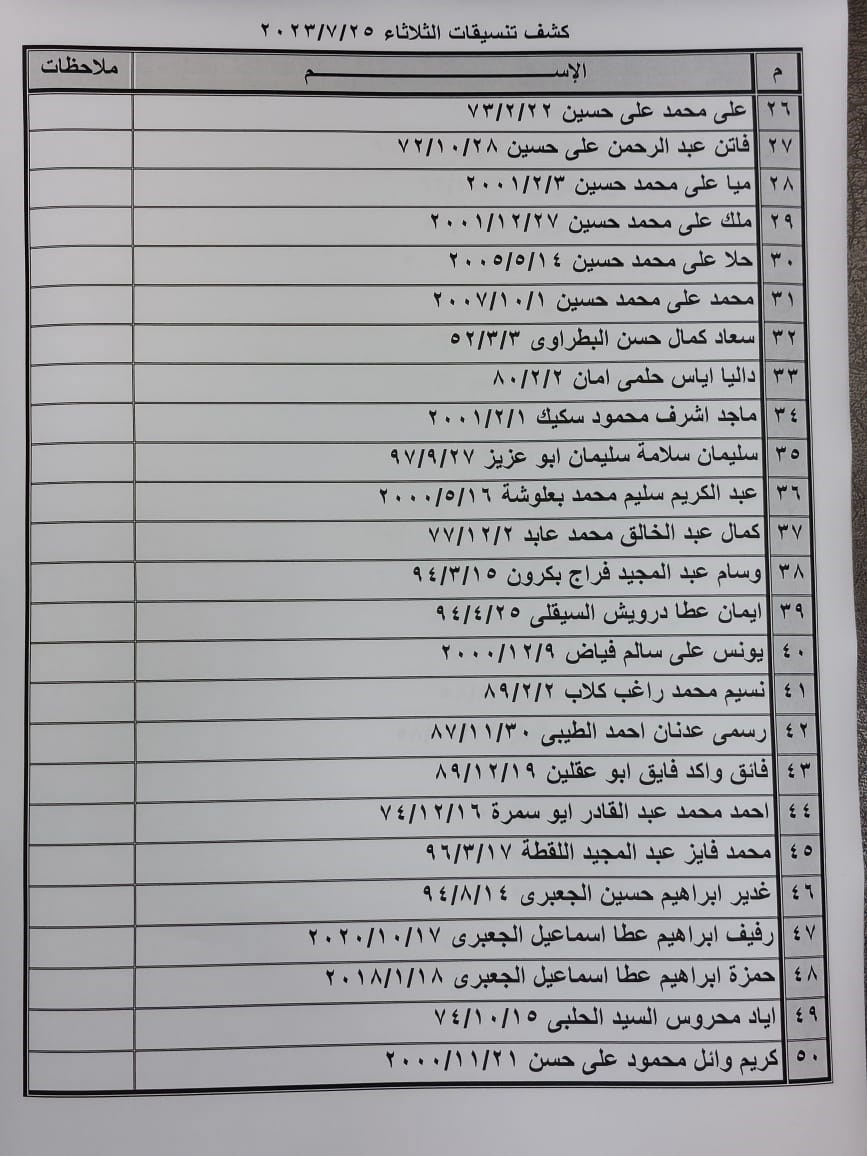 كشف تنسيقات الثلاثاء ٢٠٢٣/٧/٢٥
م الإســـــــــــــــم ملاحظات
٢٦ على محمد على حسين ٧٣/٢/٢٢
٢٧ فاتن عبد الرحمن على حسين ٧٢/١٠/٢٨
٢٨ ميا على محمد حسين ٢٠٠١/٢/٣
٢٩ ملك على محمد حسين ٢٠٠١/١٢/٢٧
٣٠ حلا على محمد حسين ٢٠٠٥/٥/١٤
٣١ محمد على محمد حسين ٢٠٠٧/١٠/١
٣٢ سعاد كمال حسن البطراوى ٥٢/٣/٣
٣٣ داليا اياس حلمى امان ٨٠/٢/٢
٣٤ ماجد اشرف محمود سكيك ٢٠٠١/٢/١
٣٥ سليمان سلامة سليمان ابو عزيز ٩٧/٩/٢٧
٣٦ عبد الكريم سليم محمد بعلوشة ٢٠٠٠/٥/١٦
٣٧ كمال عبد الخالق محمد عابد ٧٧/١٢/٢
٣٨ وسام عبد المجيد فراج بكرون ٩٤/٣/١٥
٣٩ ايمان عطا درويش السيقلى ٩٤/٤/٢٥
٤٠ يونس على سالم فياض ٢٠٠٠/١٢/٩
٤١ نسيم محمد راغب كلاب ٨٩/٢/٢
٤٢ رسمى عدنان احمد الطيبى ٨٧/١١/٣٠
٤٣ فائق واكد فايق ابو عقلين ٨٩/١٢/١٩
٤٤ احمد محمد عبد القادر ايو سمرة ٧٤/١٢/١٦
٤٥ محمد فايز عبد المجيد اللقطة ٩٦/٣/١٧
٤٦ غدير ابراهيم حسين الجعبرى ٩٤/٨/١٤
٤٧ رفيف ابراهيم عطا اسماعيل الجعبرى ٢٠٢٠/١٠/١٧
٤٨ حمزة ابراهيم عطا اسماعيل الجعبرى ٢٠١٨/١/١٨
٤٩ اياد محروس السيد الحلبى ٧٤/١٠/١٥
٥٠ كريم وائل محمود على حسن ٢٠٠٠/١١/٢١